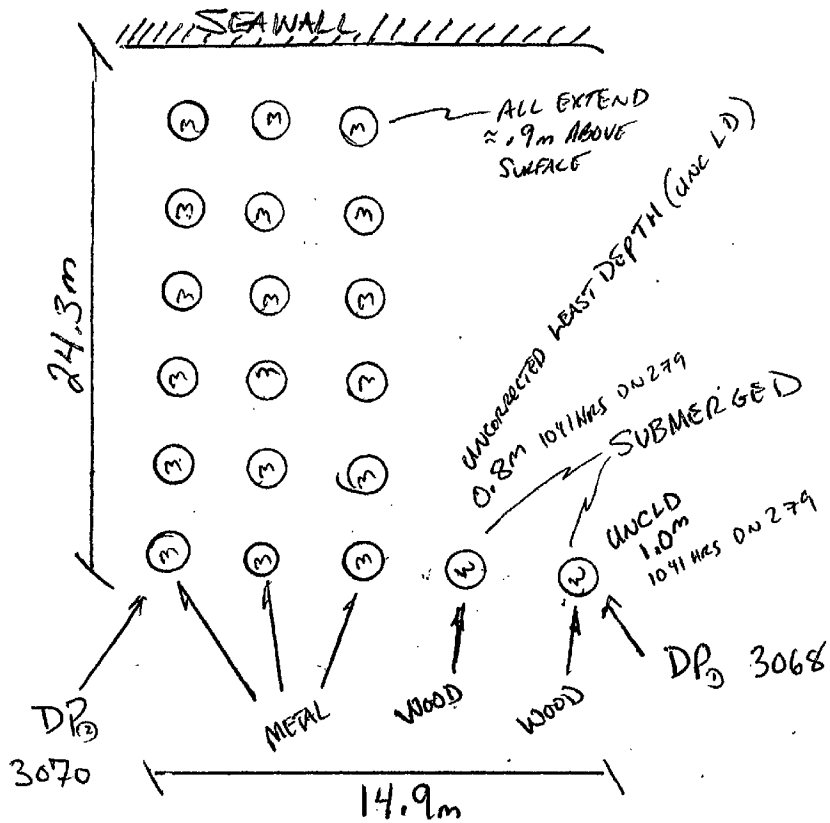 SEAWALL
ALL EXTEND
≈ .9m ABOVE
SURFACE
24.3m
M M M
M M M
M M M
M M M
M M M
M M M W W
UNCORRECTED LEAST DEPTH (UNCLD)
0.8m 1041 HRS DN 279
SUBMERGED
UNCLD
1.0m
1041 HRS DN 279
DP② 3070
METAL
WOOD
WOOD
DP① 3068
14.9m